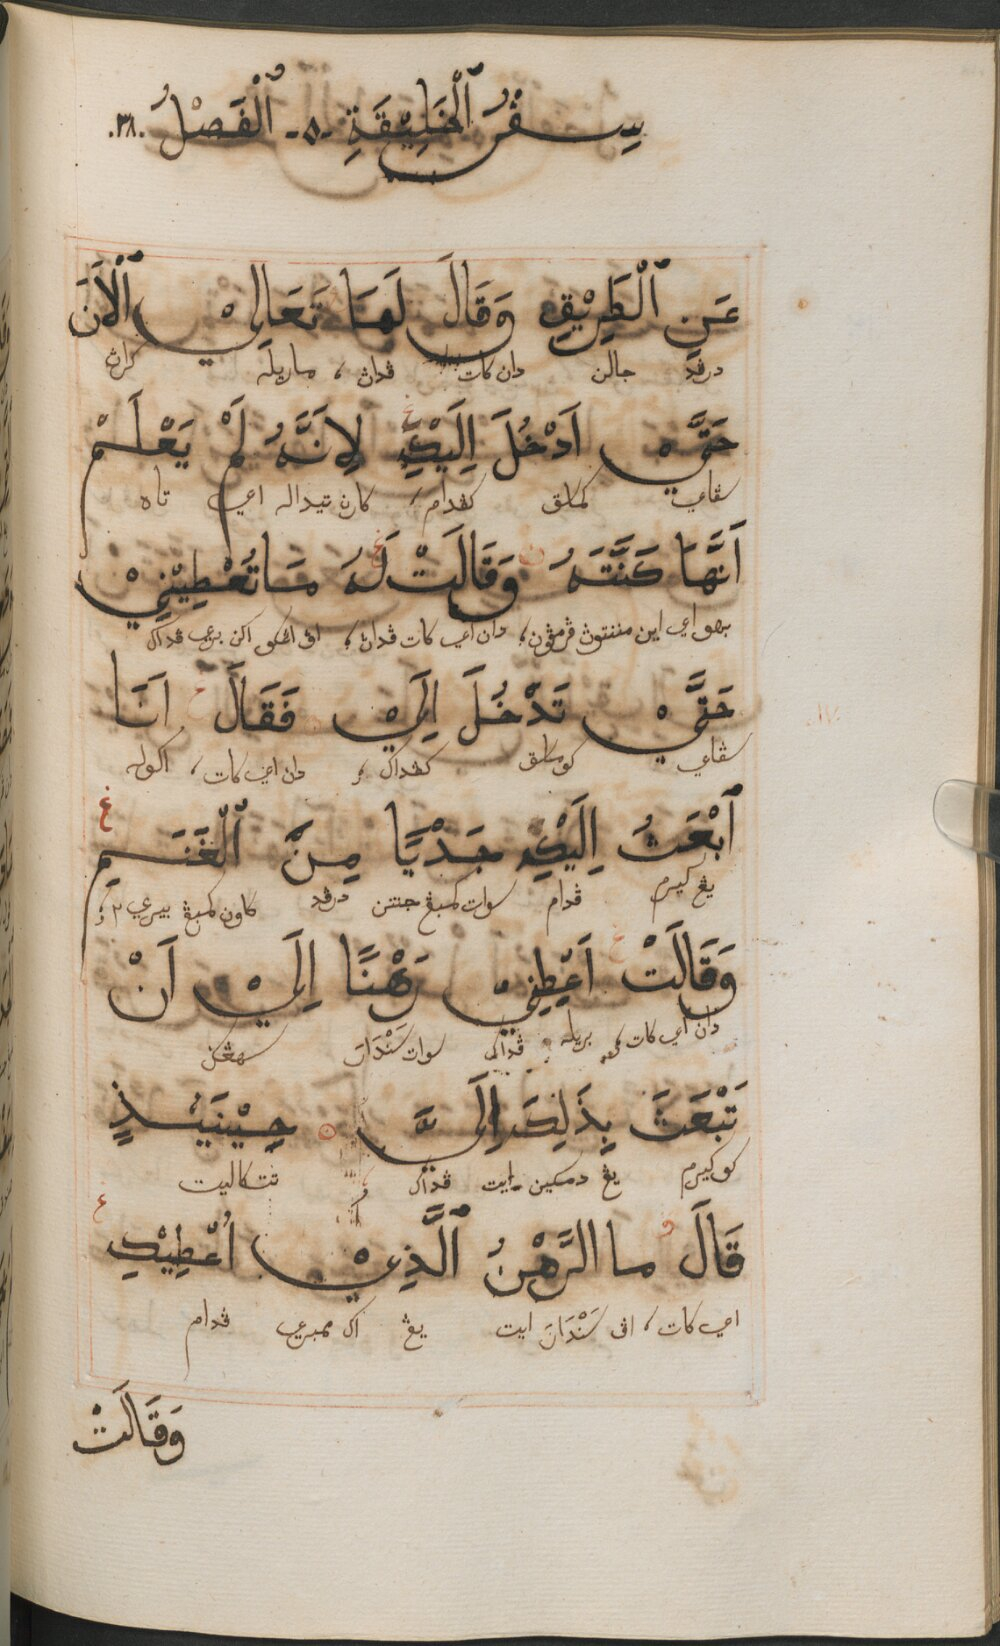 سِفْرُ ٱلْخَلِيْقَةِ -٥- ٱلْفَصْلُ .٣٨.
عَنِ ٱلْطَرِيْقِ وَقَالَ لَهَا تَعَالِيْ ٱلْاَنَ
درڤد جالن دان كات ڤداڽ ، ماريله كراڽ
حَتَّيْ اَدْخُلَ اِلَيْكِ لِاَنَّهُ لَمْ يَعْلَمْ
سڤاي كماسق كڤدام ، كارن تيداله اي تاه
اَنَّهَا كَنَّتَهُ وَقَالَتْ لَهُ مَا تُعْطِيْنِيْ
بهو اي اين مننتوڽ ڤرمڤون ، دان اي كات ڤداڽ ، اڤ اڠكو اكن بري ڤداك
حَتَّيْ تَدْخُلَ اِلَيْ فَقَالَ اَنَا
سڤاي كو ماسق كڤداك ، دان اي كات ، اكوله
ٱبْعَثُ اِلَيْكِ جَدْيًا مِنَ ٱلْغَنَمِ
يڠ كيرم ڤدام سوات كمبڠ جنتن درڤد كاون كمبڠ بيري ٢
وَقَالَتْ اَعْطِنِيْ رَهْنًا اِلَيْ اَنْ
دان اي كات ، بريله ڤداك سوات سَنْدَارَ سهڠكن
تَبْعَثَ بِذَلِكَ اِلَيَّ حِيْنَئِذٍ
كو كيرم يڠ دمكين ايت ڤداك تتكاليت
قَالَ ما الرَّهْنُ ٱلَّذِيْ اُعْطِيْكِ
اي كات ، اڤ سَنْدَارَ ايت يڠ اك ممبري ڤدام
وَقَالَتْ